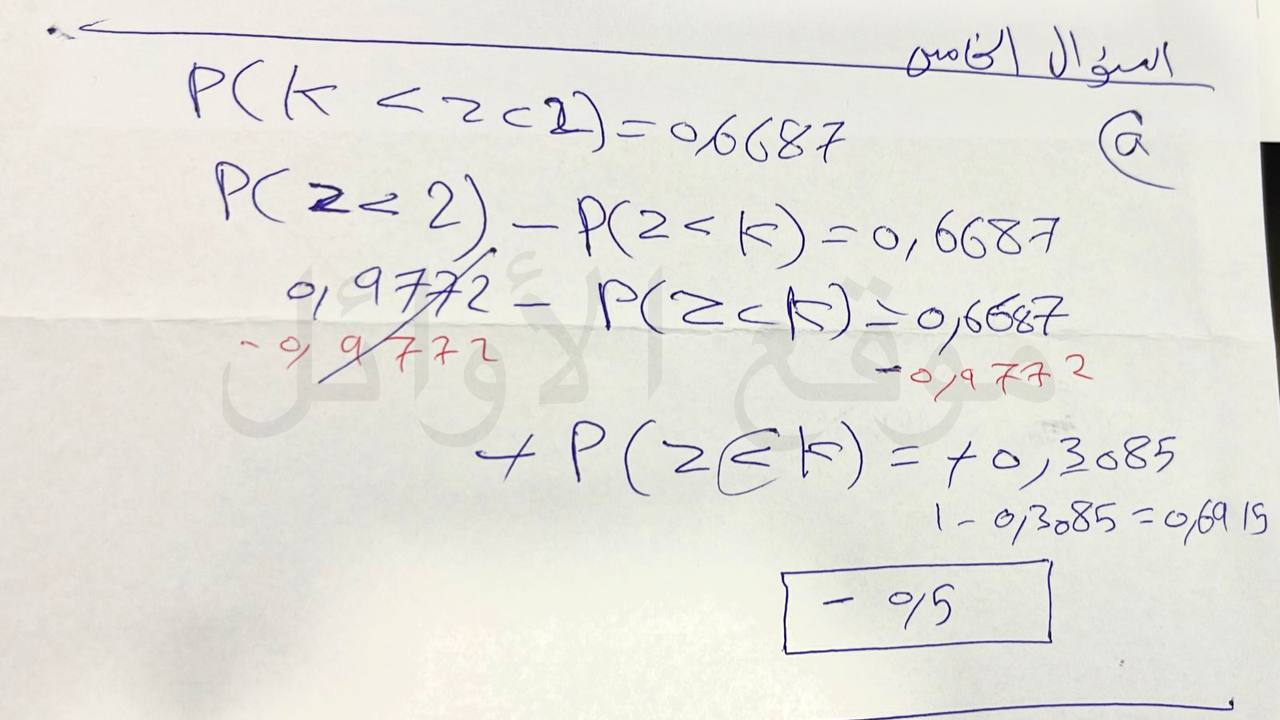 السؤال الخامس
a
P(k < z < 2) = 0,6687
P(z < 2) − P(z < k) = 0,6687
0,9772 − P(z < k) = 0,6687
-0,9772 -0,9772
+ P(z < k) = +0,3085
1 - 0,3085 = 0,6915
- 0,5
موقع الأوائل